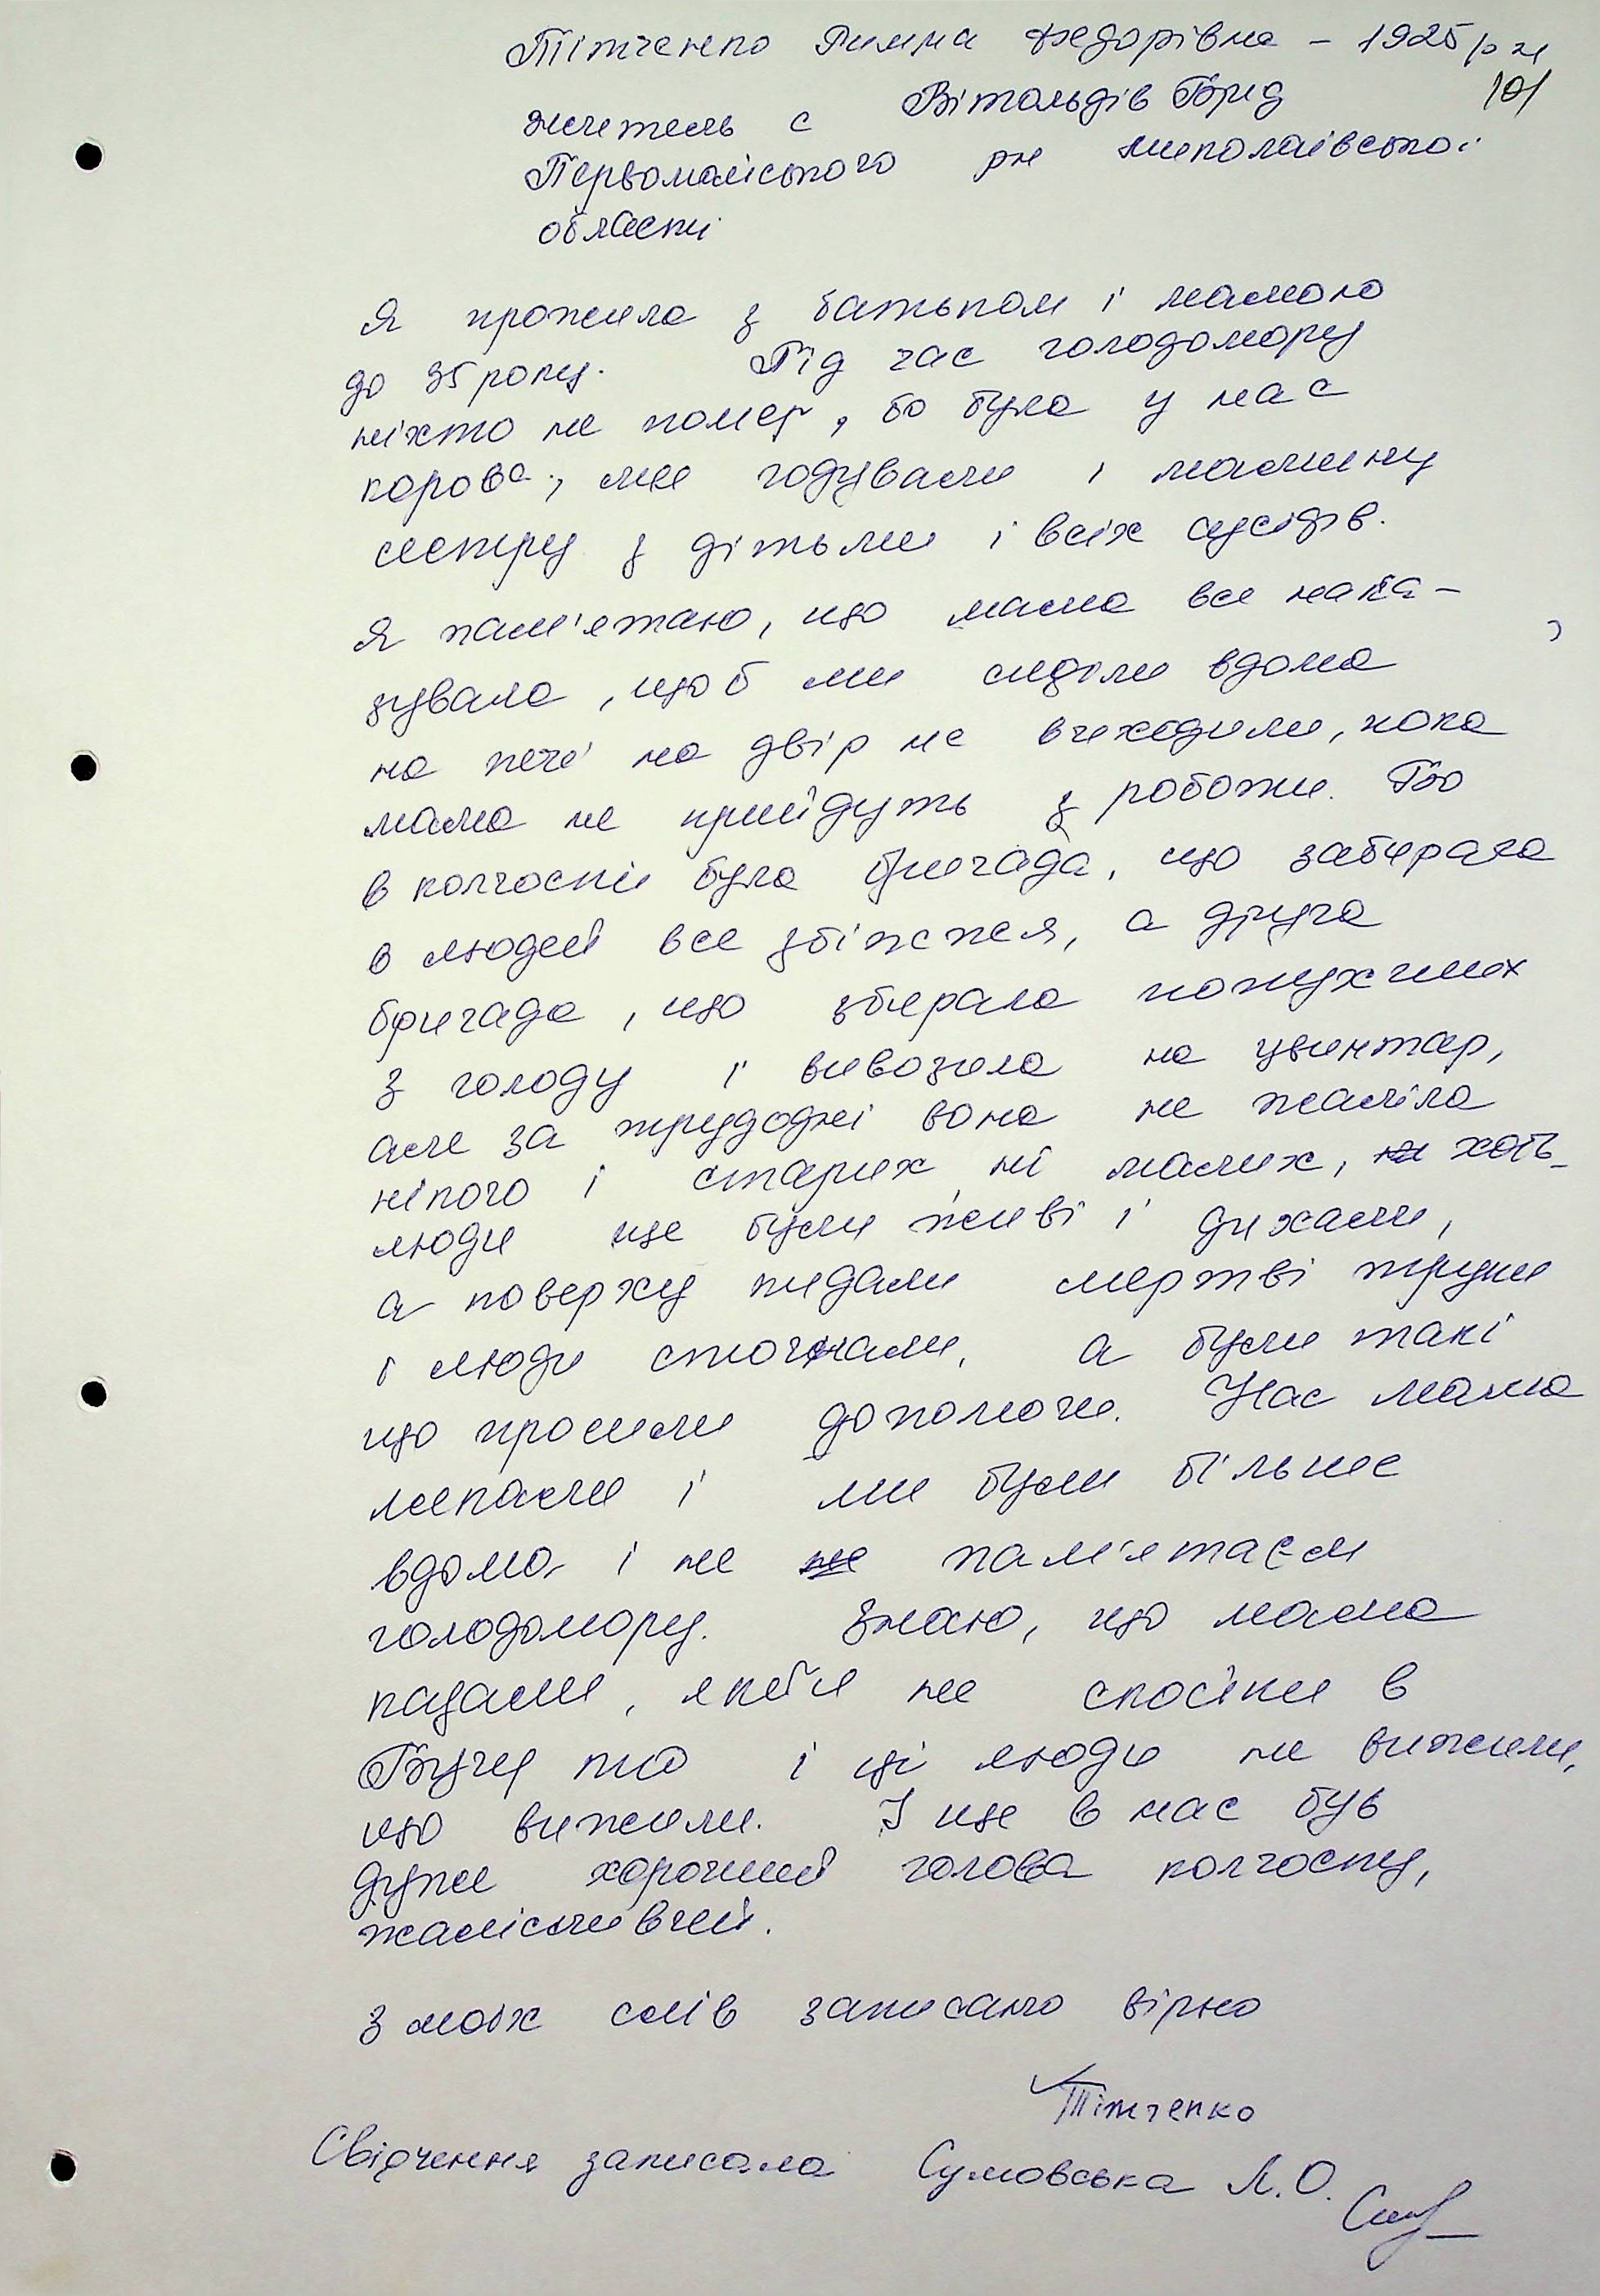 Тітченко Римма Федорівна – 1925 р н
101
житель с Вітольдів Брід
Первомайського рн Миколаївської
області
Я прожила з батьком і мамою
до 35 року. Під час голодомору
ніхто не помер, бо була у нас
корова, ми годували і мамину
сестру з дітьми і всіх сусідів.
Я пам'ятаю, що мама все нака-
зувала, щоб ми сиділи вдома
на печі на двір не виходили, пока
мама не прийдуть з роботи. Бо
в колгоспі була бригада, що забирала
в людей все збіжжя, а друга
бригада, що збирала попухших
з голоду і вивозила на цвинтар,
але за трудодні вона не жаліла
нікого і старих ні малих, хоть
люди ще були живі і дихали,
а поверху кидали мертві трупи
і люди стогнали, а були такі
що просили допомоги. Нас мама
пам'ятаєм
вдома і не не пам'ятаєм
голодомору. Знаю, що мама
казали, якби не спосіки в
Бугу то і ці люди не вижили,
що вижили. І ще в нас був
дуже хороший голова колгоспу,
жалісливий.
З моїх слів записано вірно
Тітченко
Свідчення записала Сумовська Л.О.